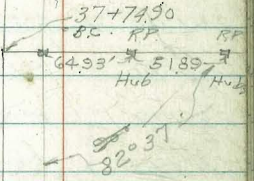 37+74.90
B.C. R.P. R.P.
64.93' 51.89
Hub Hub
82° 37